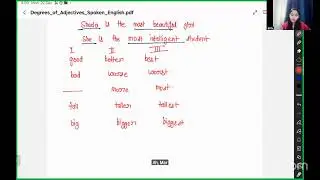 Degrees_of_Adjectives_Spoken_English.pdf
is the most beautiful girl
She is the most intelligent student
I II III
good better best
bad worse worst
more most
tall taller tallest
big bigger biggest